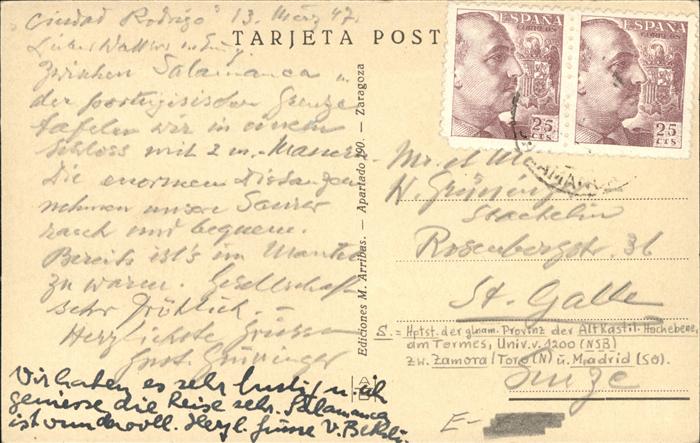 "Ciudad Rodrigo" 13. März 47.
TARJETA POST
Zwischen Salamanca u.
der portugisischen Grenze
tafeln wir in einem
Schloss mit 2 m. Mauern
Die enormen Distanzen
nehmen unsere Saurer
rasch und bequem.
Bereits ist's im Mantel
zu warm. Gesellschaft
sehr fröhlich. –
Herzlichste Grüsse
Gust. Grüninger
Wir haben es sehr lustig u. ich
geniesse die Reise sehr. Salamanca
ist wundervoll. Herzl. Grüsse V.
Ediciones M. Arribas. — Apartado 190. — Zaragoza
ESPAÑA
CORREOS
25
CTS
ESPAÑA
25
CTS
W. Grüninger
Rosenbergstr. 36
St. Gallen
S. = Hptst. der glnam. Provinz der Altkastil. Hochebene,
am Tormes, Univ. v. 1200 (NSB)
zw. Zamora/Toro (N) u. Madrid (SO).
E-